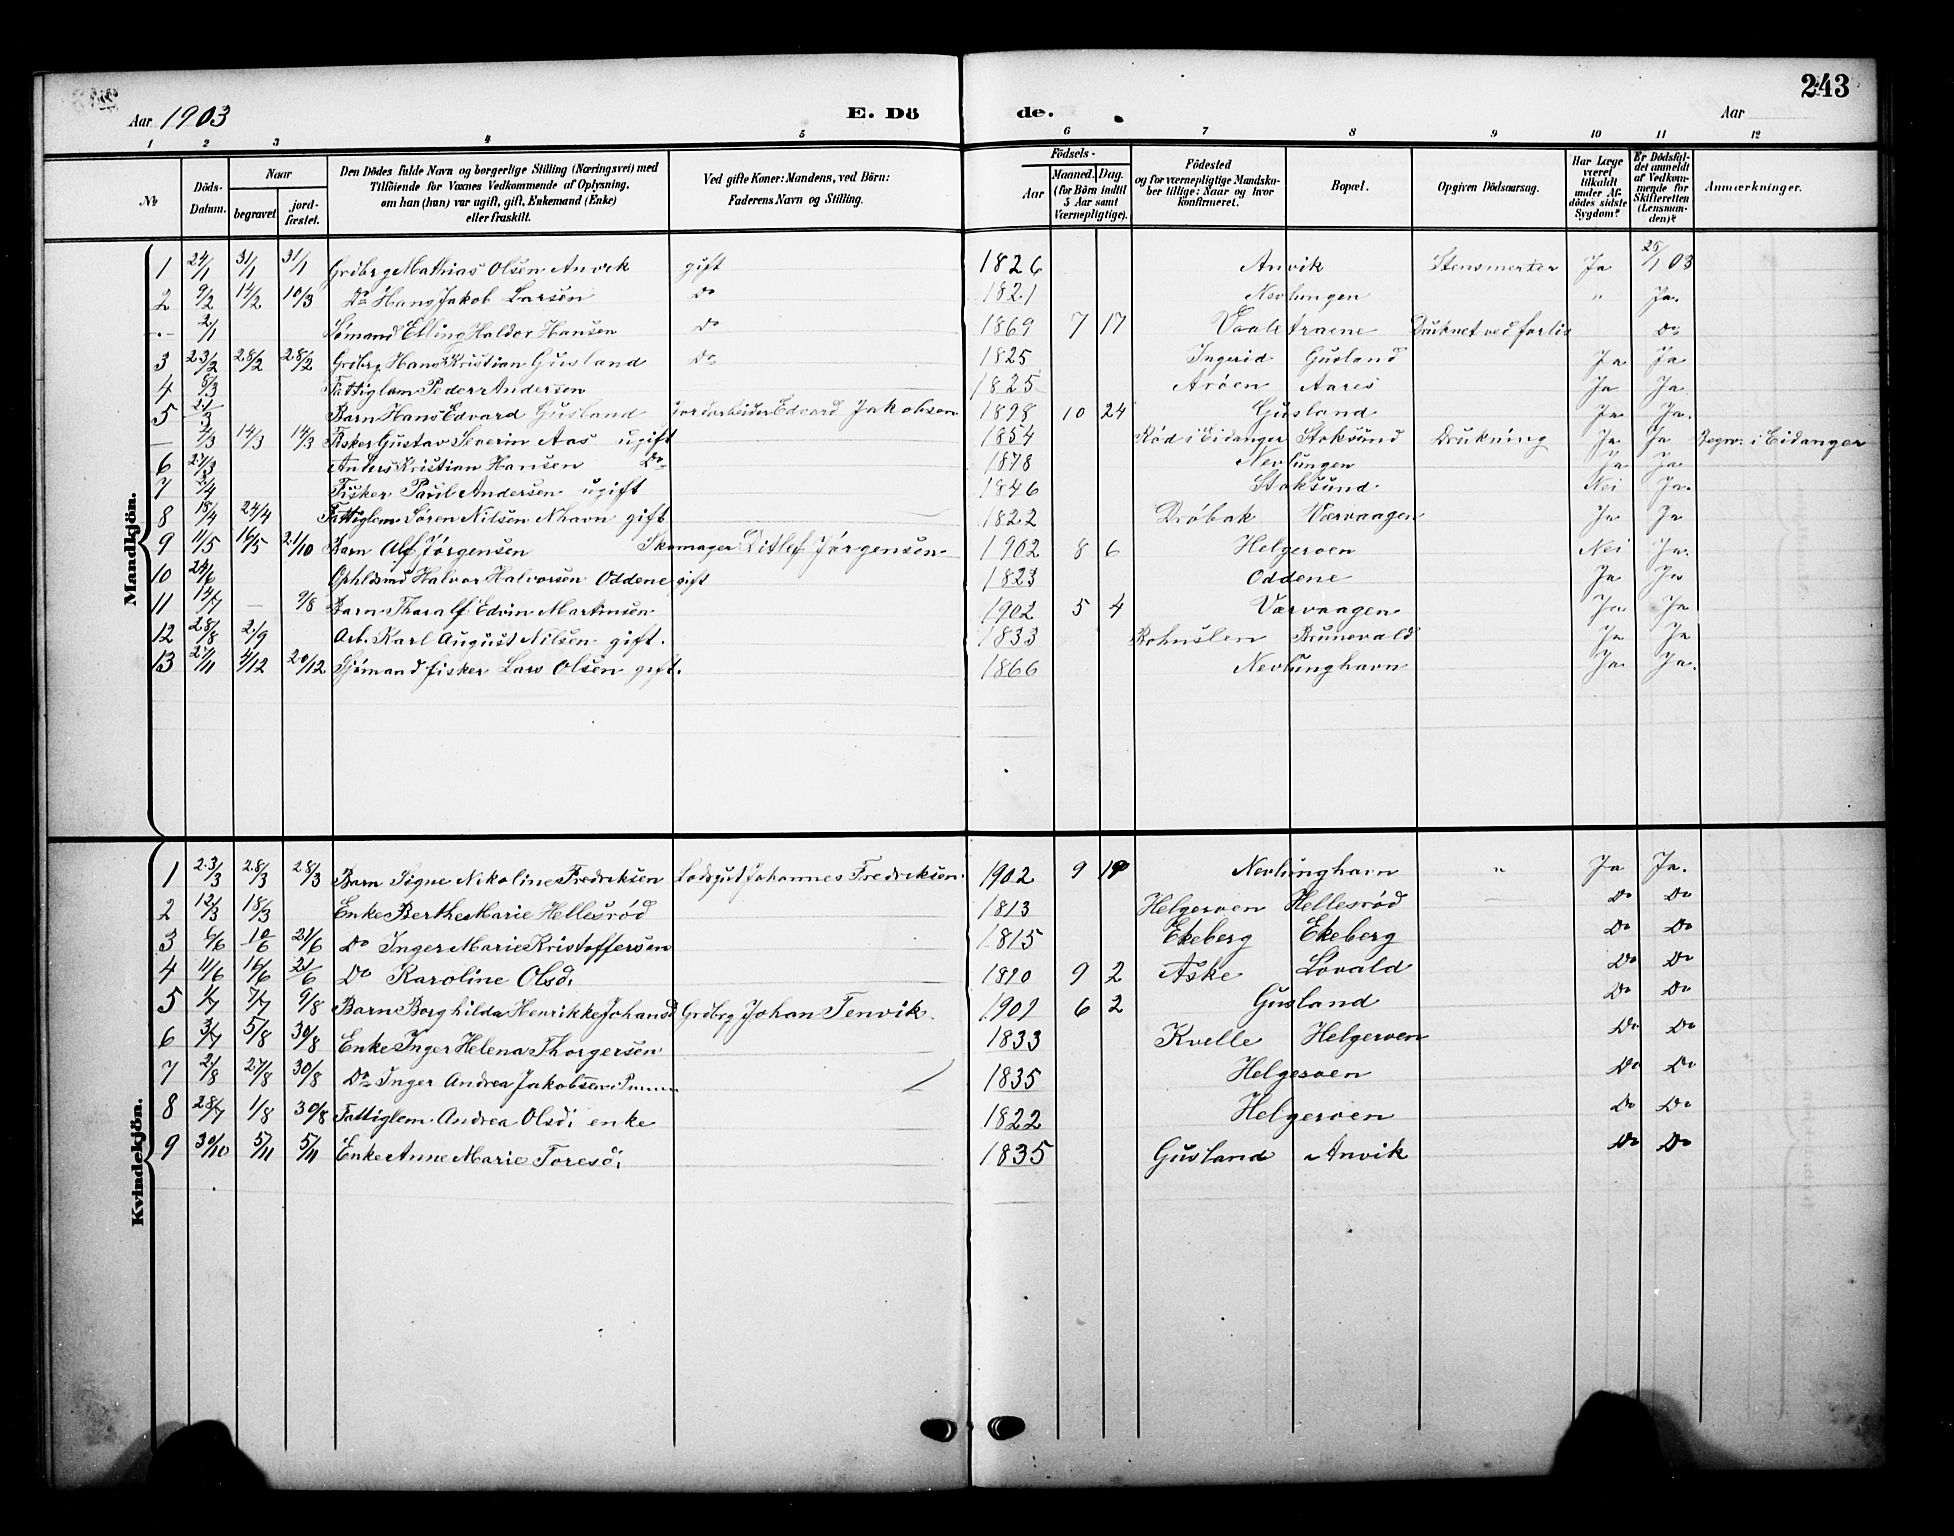 243
Aar 1903
E. Dö de.
Aar
1 2 3 4 5 6 7 8 9 10 11 12
№
Döds-Datum.
Naar
begravet.
jord-fæstet.
Den Dödes fulde Navn og borgerlige Stilling (Næringsvei) med Tilföiende for Voxnes Vedkommende af Oplysning, om han (hun) var ugift, gift, Enkemand (Enke) eller fraskilt.
Ved gifte Koner: Mandens, ved Börn: Faderens Navn og Stilling.
Födsels-
Aar
Maaned. Dag.
(for Börn indtil 5 Aar samt Værnepligtige).
Födested og for værnepligtige Mandskaber tillige: Naar og hvor konfirmeret.
Bopæl.
Opgiven Dödsaarsag.
Har Læge været tilkaldt under Afdödes sidste Sygdom?
Er Dödsfaldet anmeldt af Vedkommende for Skifteretten (Lensmanden)?
Anmærkninger.
Mandkjön.
1 24/1 31/1 31/1 Grdbrg Mathias Olsen Anvik gift 1826 Anvik Stensmerter Ja 25/1 03
2 9/2 14/2 10/3 Do Hans Jakob Larsen Do 1821 Nevlungen " Ja.
— 2/1 Sømand Elling Haldor Hansen Do 1869 7 17 Druknet ved forlis Do
3 23/2 28/2 28/2 Grdbrg Hans Kristian Gusland Do 1825 Ingerid Gusland Ja Ja
4 5/3 Fattiglem Peder Andersen 1825 Arøen Aares Ja Ja
5 21/3 Barn Hans Edvard Gusland Jordarbeider Edvard Jakobsen 1898 10 24 Gusland Ja Ja.
— 2/3 14/3 14/3 Fisker Gustav Severin Aas ugift 1854 Rød i Eidanger Stoksund Drukning Ja Ja Begrv. i Eidanger
6 27/3 Anders Kristian Hansen Do 1878 Nevlungen Ja Ja
7 2/4 Fisker Paul Andersen ugift 1846 Stoksund Nei Ja.
8 18/4 24/4 Fattiglem Søren Nilsen Nhavn gift 1822 Drøbak Værvaagen Ja Ja
9 11/5 16/5 21/10 Barn Alf Jørgensen Skomager Ditlef Jørgensen 1902 8 6 Helgeroen Nei Ja.
10 24/6 Halvor Halvorsen Oddene gift 1823 Oddene Ja Ja
11 14/7 — 9/8 Barn Tharalf Edvin Martinsen 1902 5 4 Værvaagen Ja Ja
12 28/8 2/9 Arb. Karl August Nilsen gift. 1833 Bohuslen Brunevald Ja Ja
13 27/11 4/12 20/12 Sjømand fisker Lars Olsen gift. 1866 Nevlunghavn Ja Ja.
Kvindekjön.
1 23/3 28/3 28/3 Barn Signe Nikoline Fredriksen Lodsgut Johannes Fredriksen 1902 9 19 Nevlunghavn " Ja Ja.
2 12/3 18/3 Enke Berthe Marie Hellesrød 1813 Helgeroen Hellesrød Do Do
3 6/6 10/6 21/6 Do Inger Marie Kristoffersen 1815 Ekeberg Ekeberg Do Do
4 11/6 16/6 21/6 Do Karoline Olsd. 1820 9 2 Aske Løvald Do Do
5 1/7 7/7 9/8 Barn Borghilda Henrikke Johansd Grdbrg Johan Tenvik 1901 6 2 Gusland Do Do
6 31/7 5/8 30/8 Enke Inger Helena Thorgersen 1833 Kvelle Helgeroen Do Do
7 21/8 27/8 30/8 Do Inger Andrea Jakobsen 1835 Helgeroen Do Do
8 28/7 1/8 30/8 Fattiglem Andrea Olsd. enke 1822 Helgeroen Do Do
9 30/10 5/11 5/11 Enke Anne Marie Toresd. 1835 Gusland Anvik Do Do